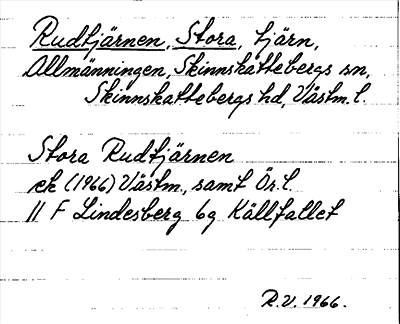 Rudtjärnen, Stora, tjärn,
Allmänningen, Skinnskattebergs sn,
Skinnskattebergs hd, Västm. l.
Stora Rudtjärnen
ek (1966) Västm., samt Ör. l.
11 F Lindesberg 6g Källfallet
R.V. 1966.